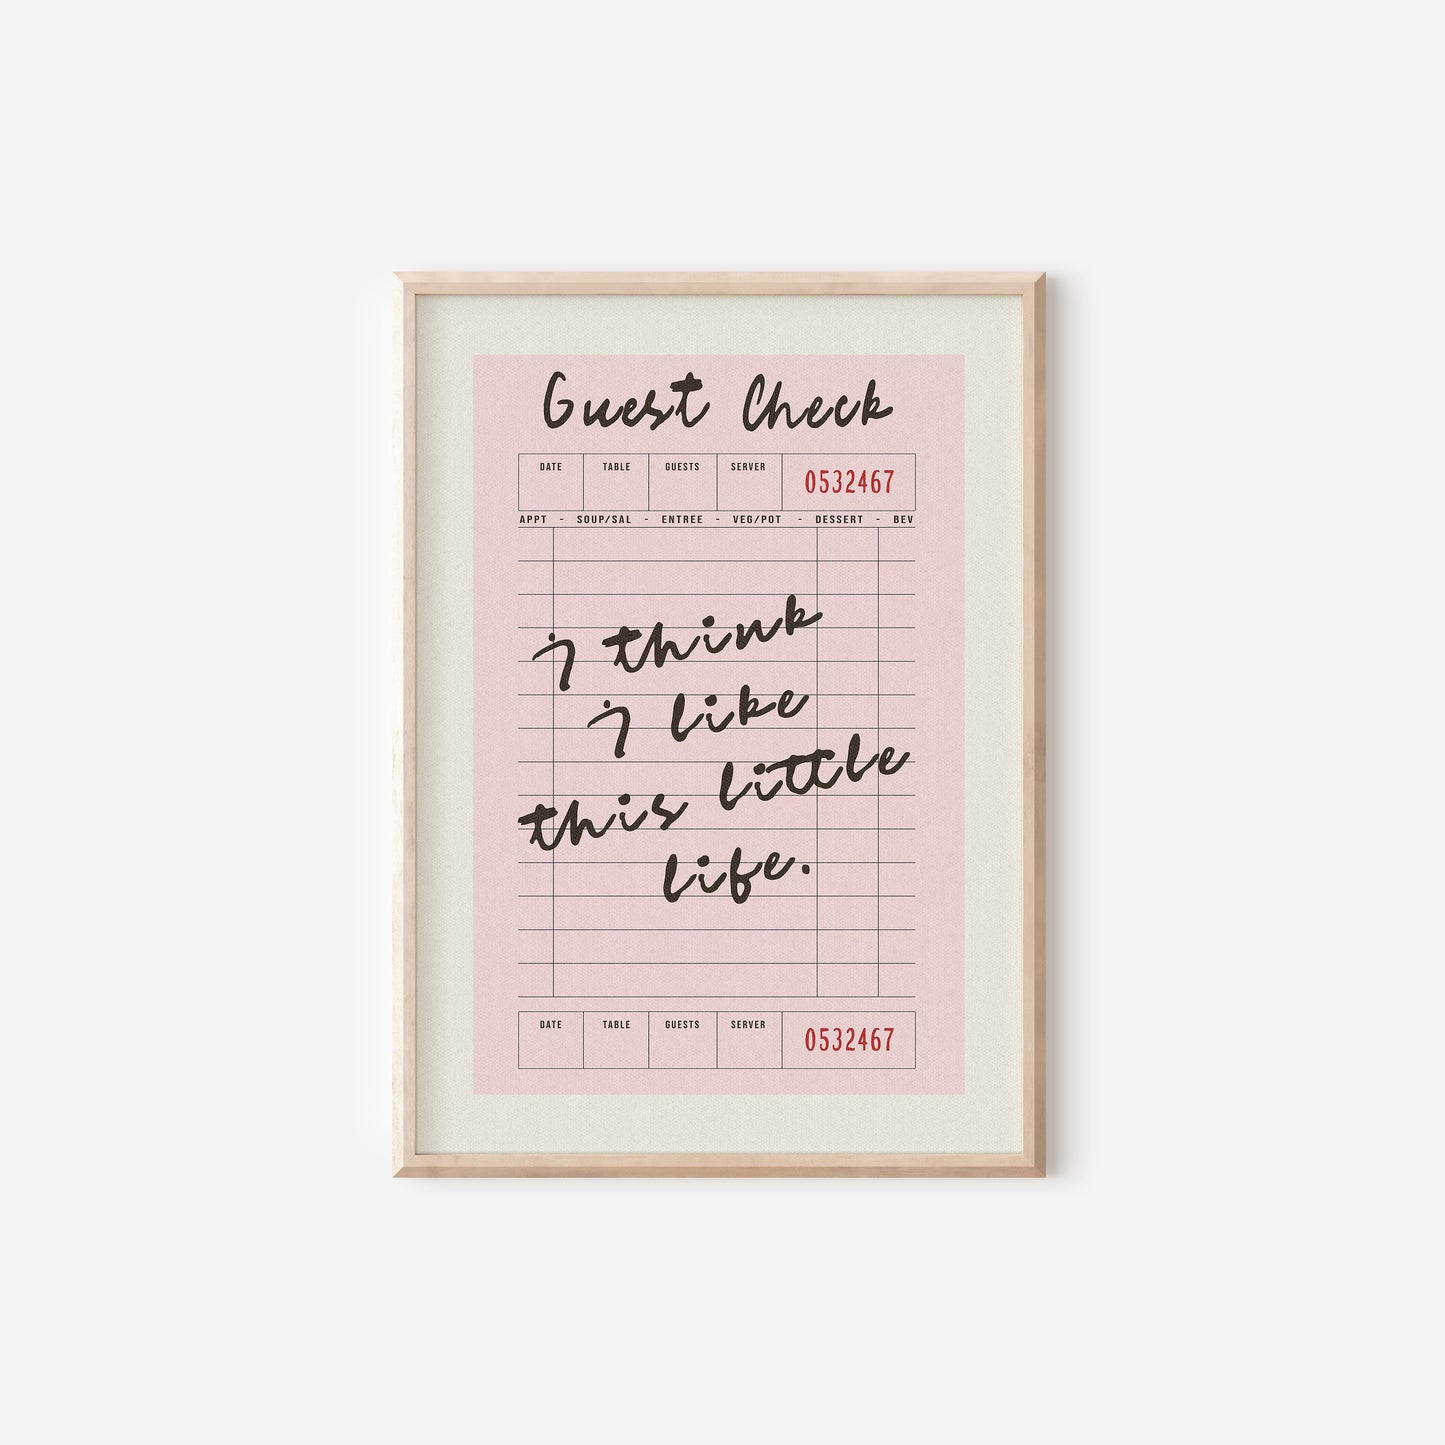 Guest Check
DATE TABLE GUESTS SERVER 0532467
APPT - SOUP/SAL - ENTREE - VEG/POT - DESSERT - BEV
i think
i like
this little
life.
DATE TABLE GUESTS SERVER 0532467